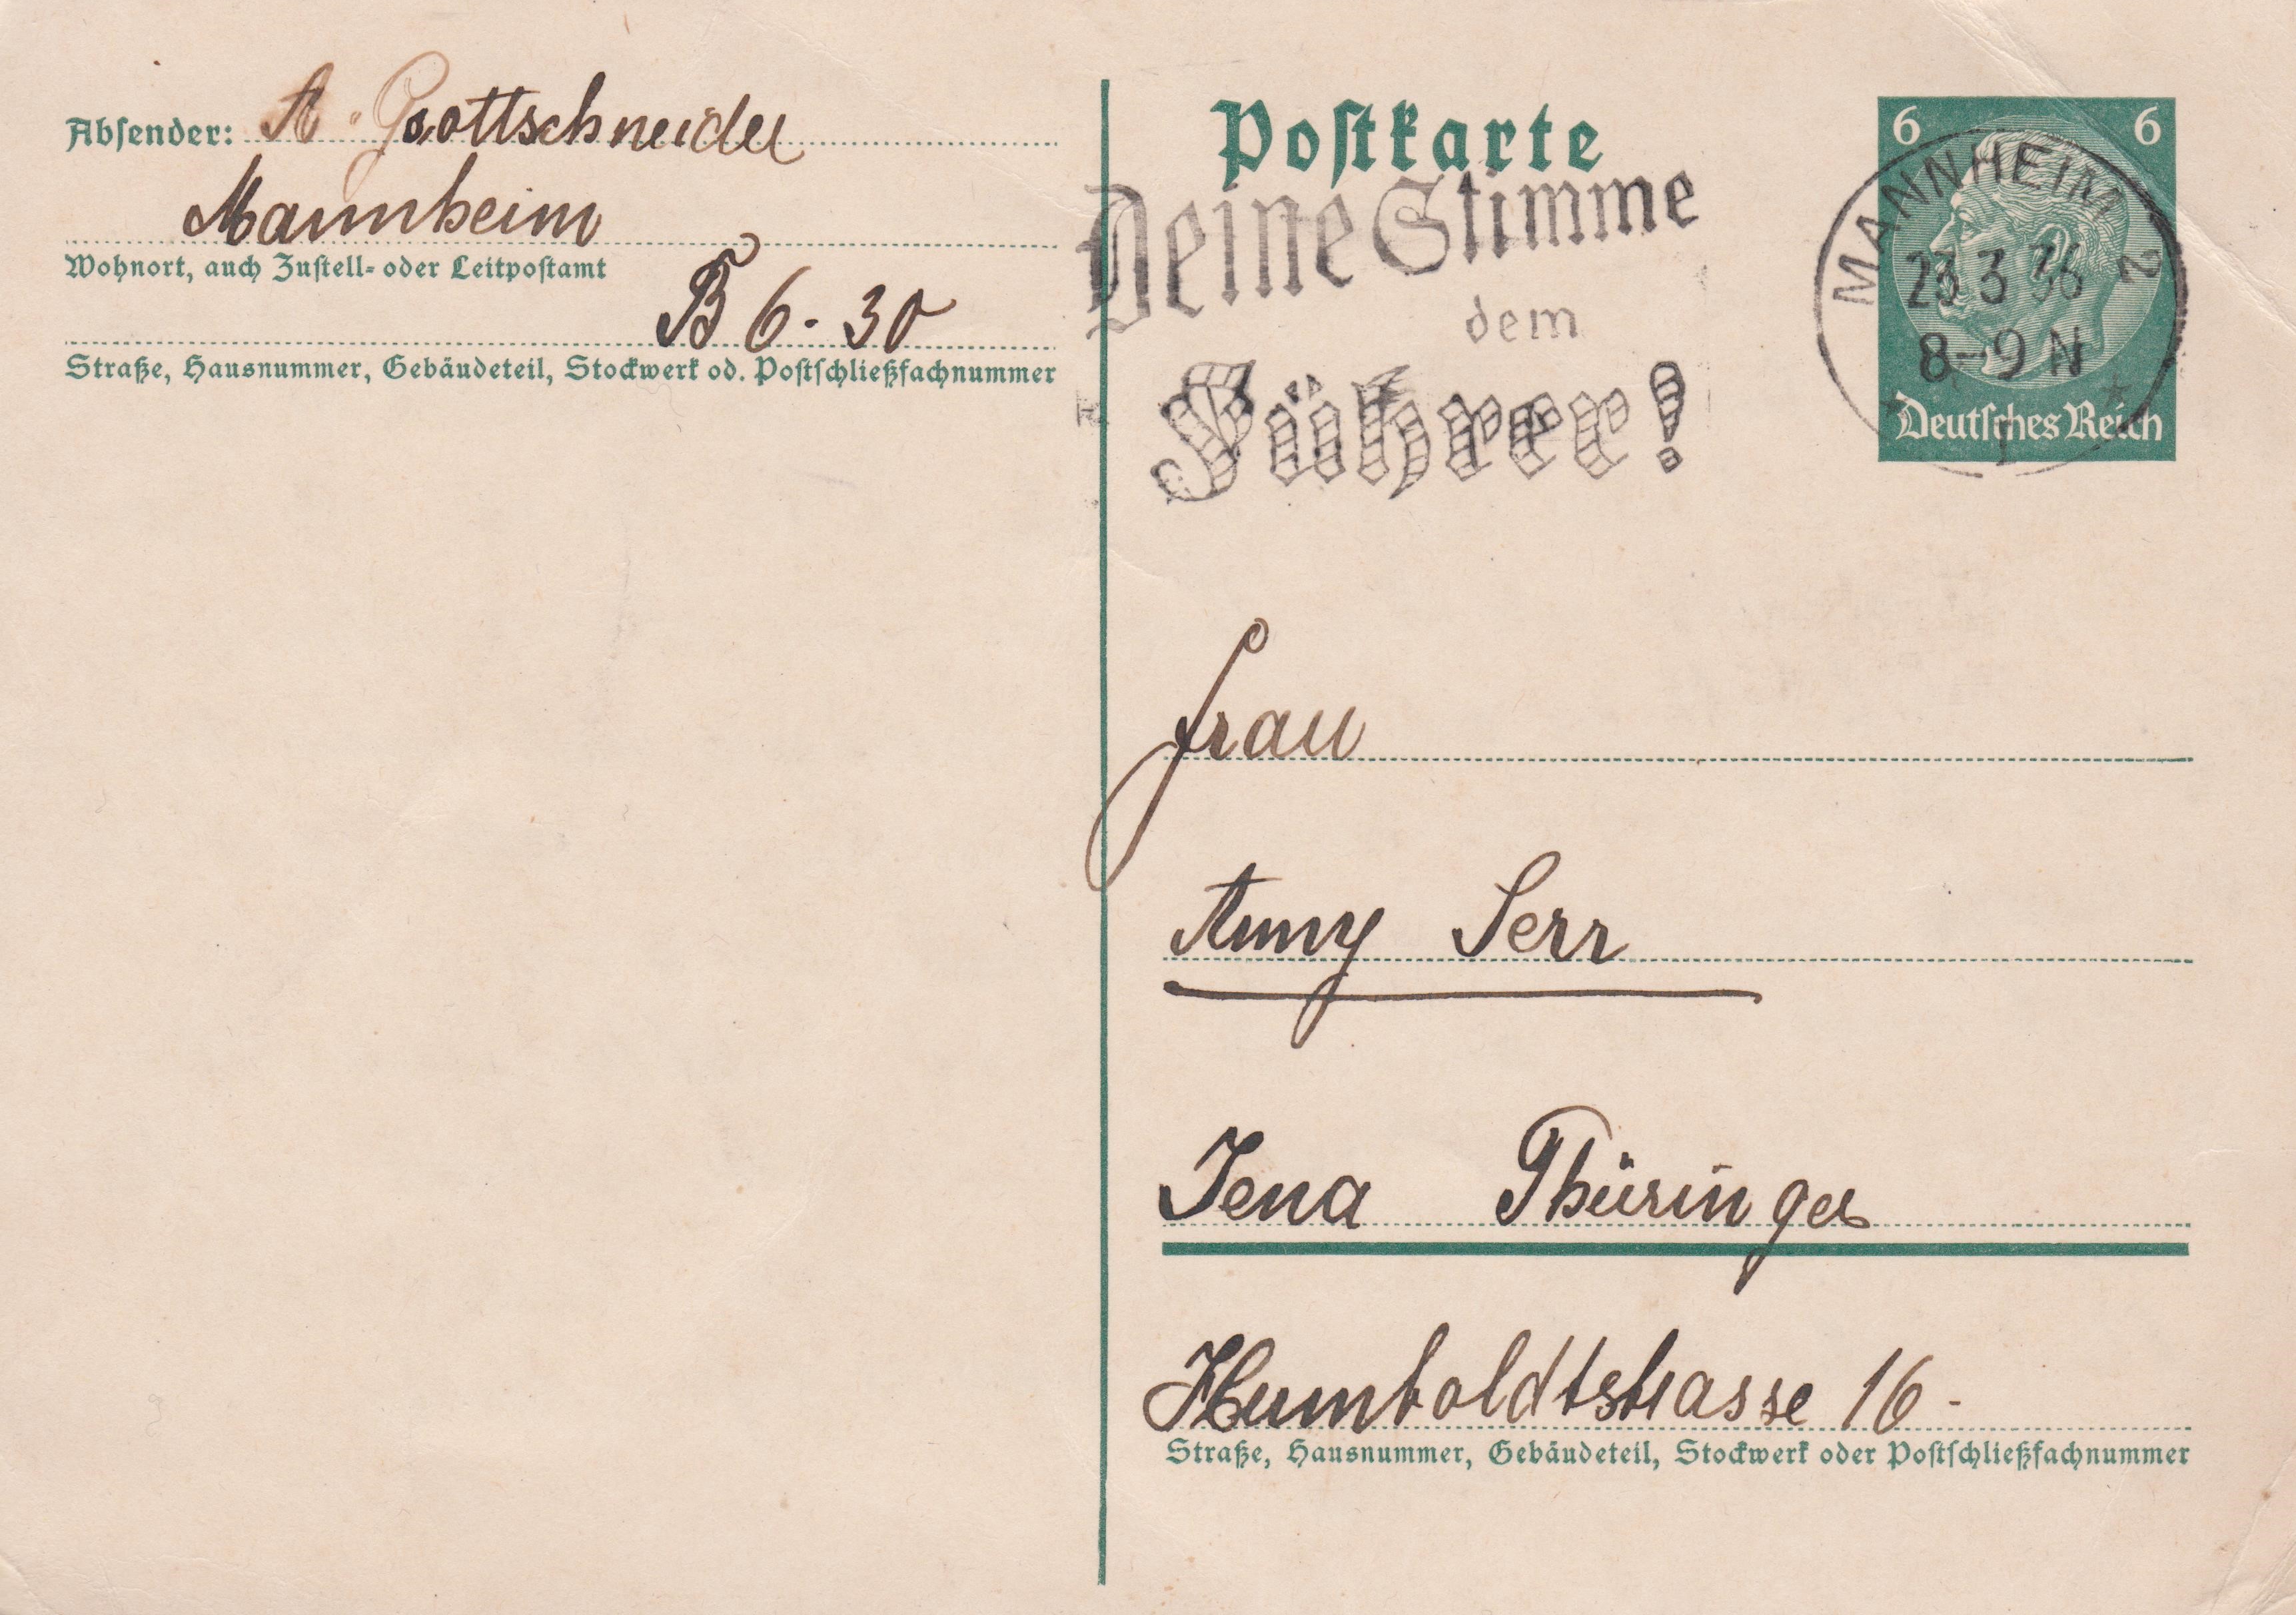 Absender: A. Gottschneider
Mannheim
Wohnort, auch Zustell- oder Leitpostamt
B 6 - 30
Straße, Hausnummer, Gebäudeteil, Stockwerk od. Postschließfachnummer
Postkarte
Deine Stimme
dem
Führer!
6 6
MANNHEIM 2
23 3 36
8-9 N
Deutsches Reich
Frau
Anny Serr
Jena Thüringen
Humboldtstrasse 16 -
Straße, Hausnummer, Gebäudeteil, Stockwerk oder Postschließfachnummer